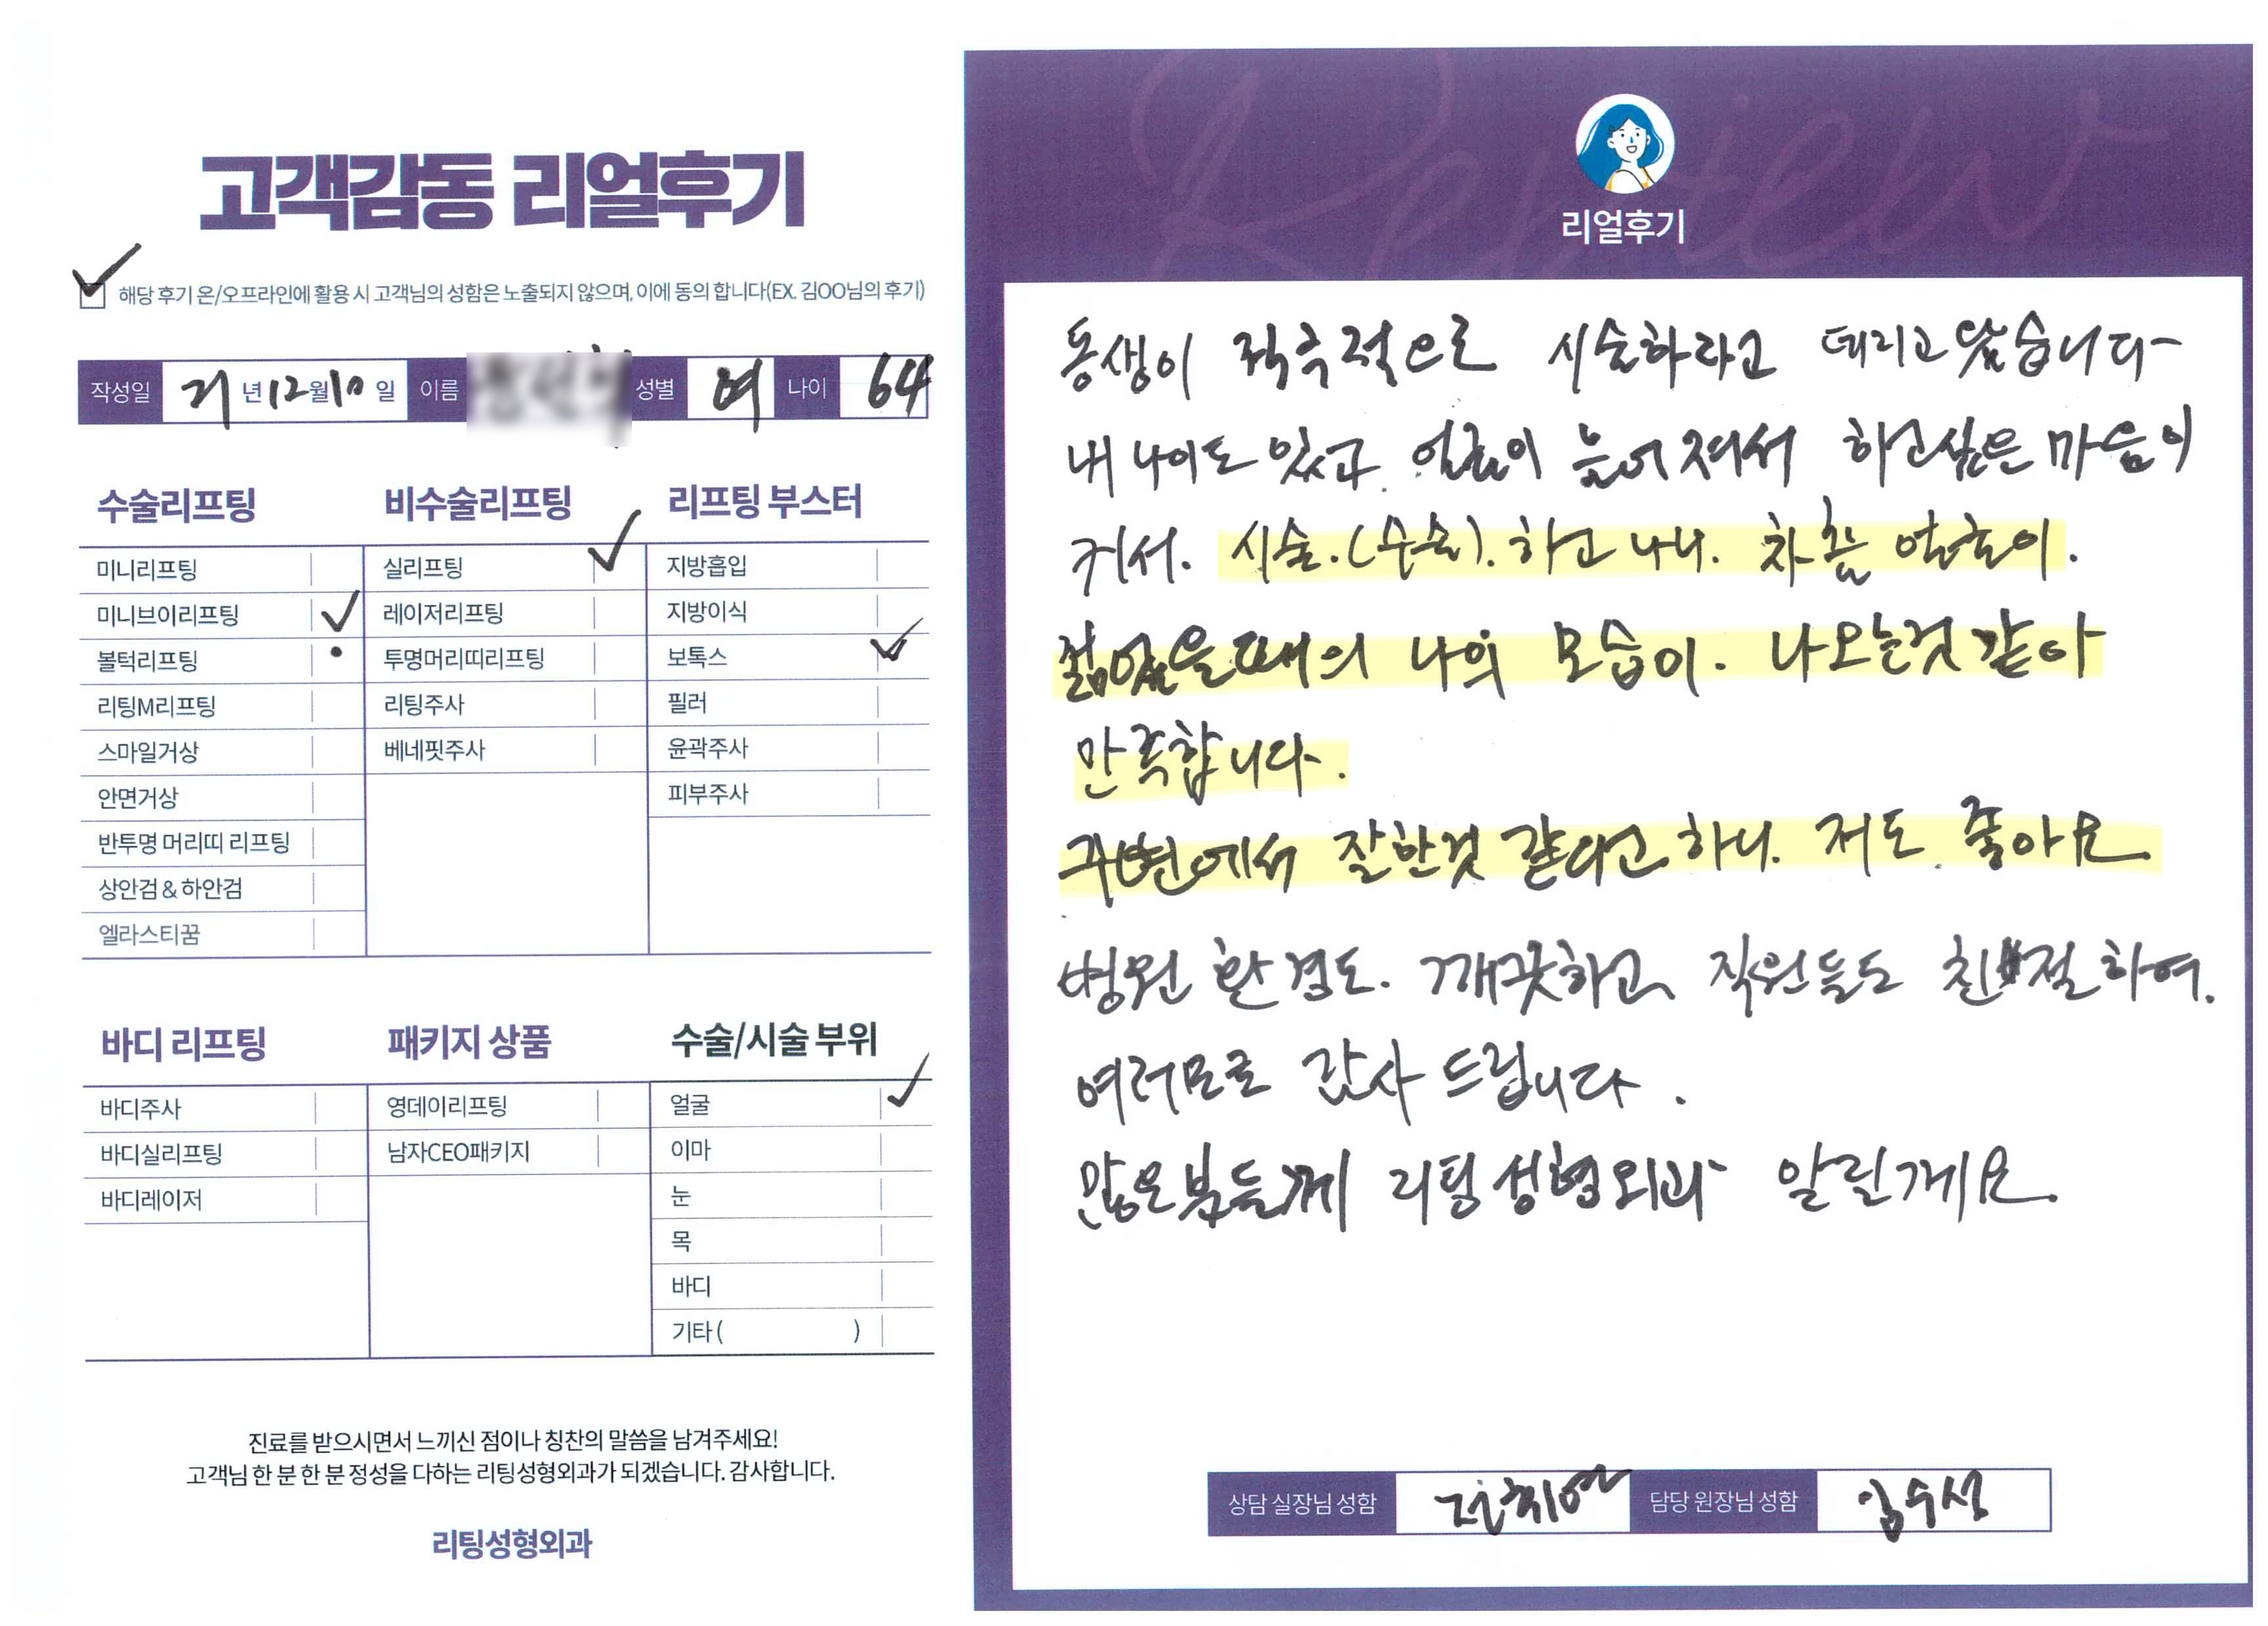 고객감동 리얼후기
해당 후기 온/오프라인에 활용 시 고객님의 성함은 노출되지 않으며, 이에 동의 합니다(EX. 김OO님의 후기)
작성일 21 년 12 월 10 일 이름 성별 여 나이 64
수술리프팅
미니리프팅
미니브이리프팅
볼턱리프팅
리팅M리프팅
스마일거상
안면거상
반투명 머리띠 리프팅
상안검 & 하안검
엘라스티꿈
비수술리프팅
실리프팅
레이저리프팅
투명머리띠리프팅
리팅주사
베네핏주사
리프팅 부스터
지방흡입
지방이식
보톡스
필러
윤곽주사
피부주사
바디 리프팅
바디주사
바디실리프팅
바디레이저
패키지 상품
영데이리프팅
남자CEO패키지
수술/시술 부위
얼굴
이마
눈
목
바디
기타 ( )
진료를 받으시면서 느끼신 점이나 칭찬의 말씀을 남겨주세요!
고객님 한 분 한 분 정성을 다하는 리팅성형외과가 되겠습니다. 감사합니다.
리팅성형외과
Review
리얼후기
동생이 적극적으로 시술하라고 데리고 왔습니다
내 나이도 있고. 얼굴이 늙어져서 하고싶은 마음이
커서. 시술.(수술). 하고 나니. 차츰 얼굴이.
젊었을때의 나의 모습이. 나오는것 같아
만족합니다.
주변에서 잘한것 같다고 하니. 저도. 좋아요
병원 환경도. 깨끗하고, 직원들도 친절하여.
여러모로 감사 드립니다.
많은분들께 리팅성형외과 알릴게요.
상담 실장님 성함 담당 원장님 성함 김수성